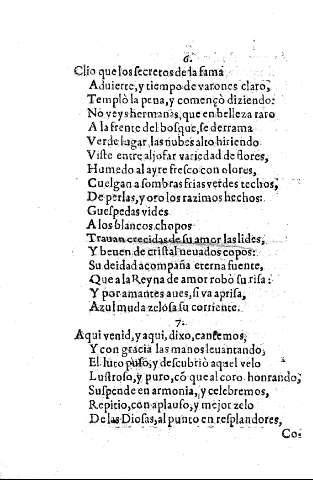 6.
Clio que los secretos de la fama
Aduierte, y tiempo de varones claro,
Templò la pena, y començò diziendo:
No veys hermanas, que en belleza raro
A la frente del bosque, se derrama
Verde lugar, las nubes alto hiriendo
Viste entre aljofar variedad de flores,
Humedo al ayre fresco con olores,
Cuelgan a sombras frias verdes techos,
De perlas, y oro los razimos hechos:
Guespedas vides
A los blancos chopos
Trauan crecidas de su amor las lides,
Y beuen de cristal neuados copos:
Su deidad acompaña eterna fuente,
Que a la Reyna de amor robò su risa:
Y por amantes aues, si va aprisa,
Azul muda zelosa su corriente.
7.
Aqui venid, y aqui, dixo, cantemos,
Y con gracia las manos leuantando,
El luto puso, y descubriò aquel velo
Lustroso, y puro, cõ que al coro honrando,
Suspende en armonia, y celebremos,
Repitio, con aplauso, y mejor zelo
De las Diosas, al punto en resplandores,
Co-